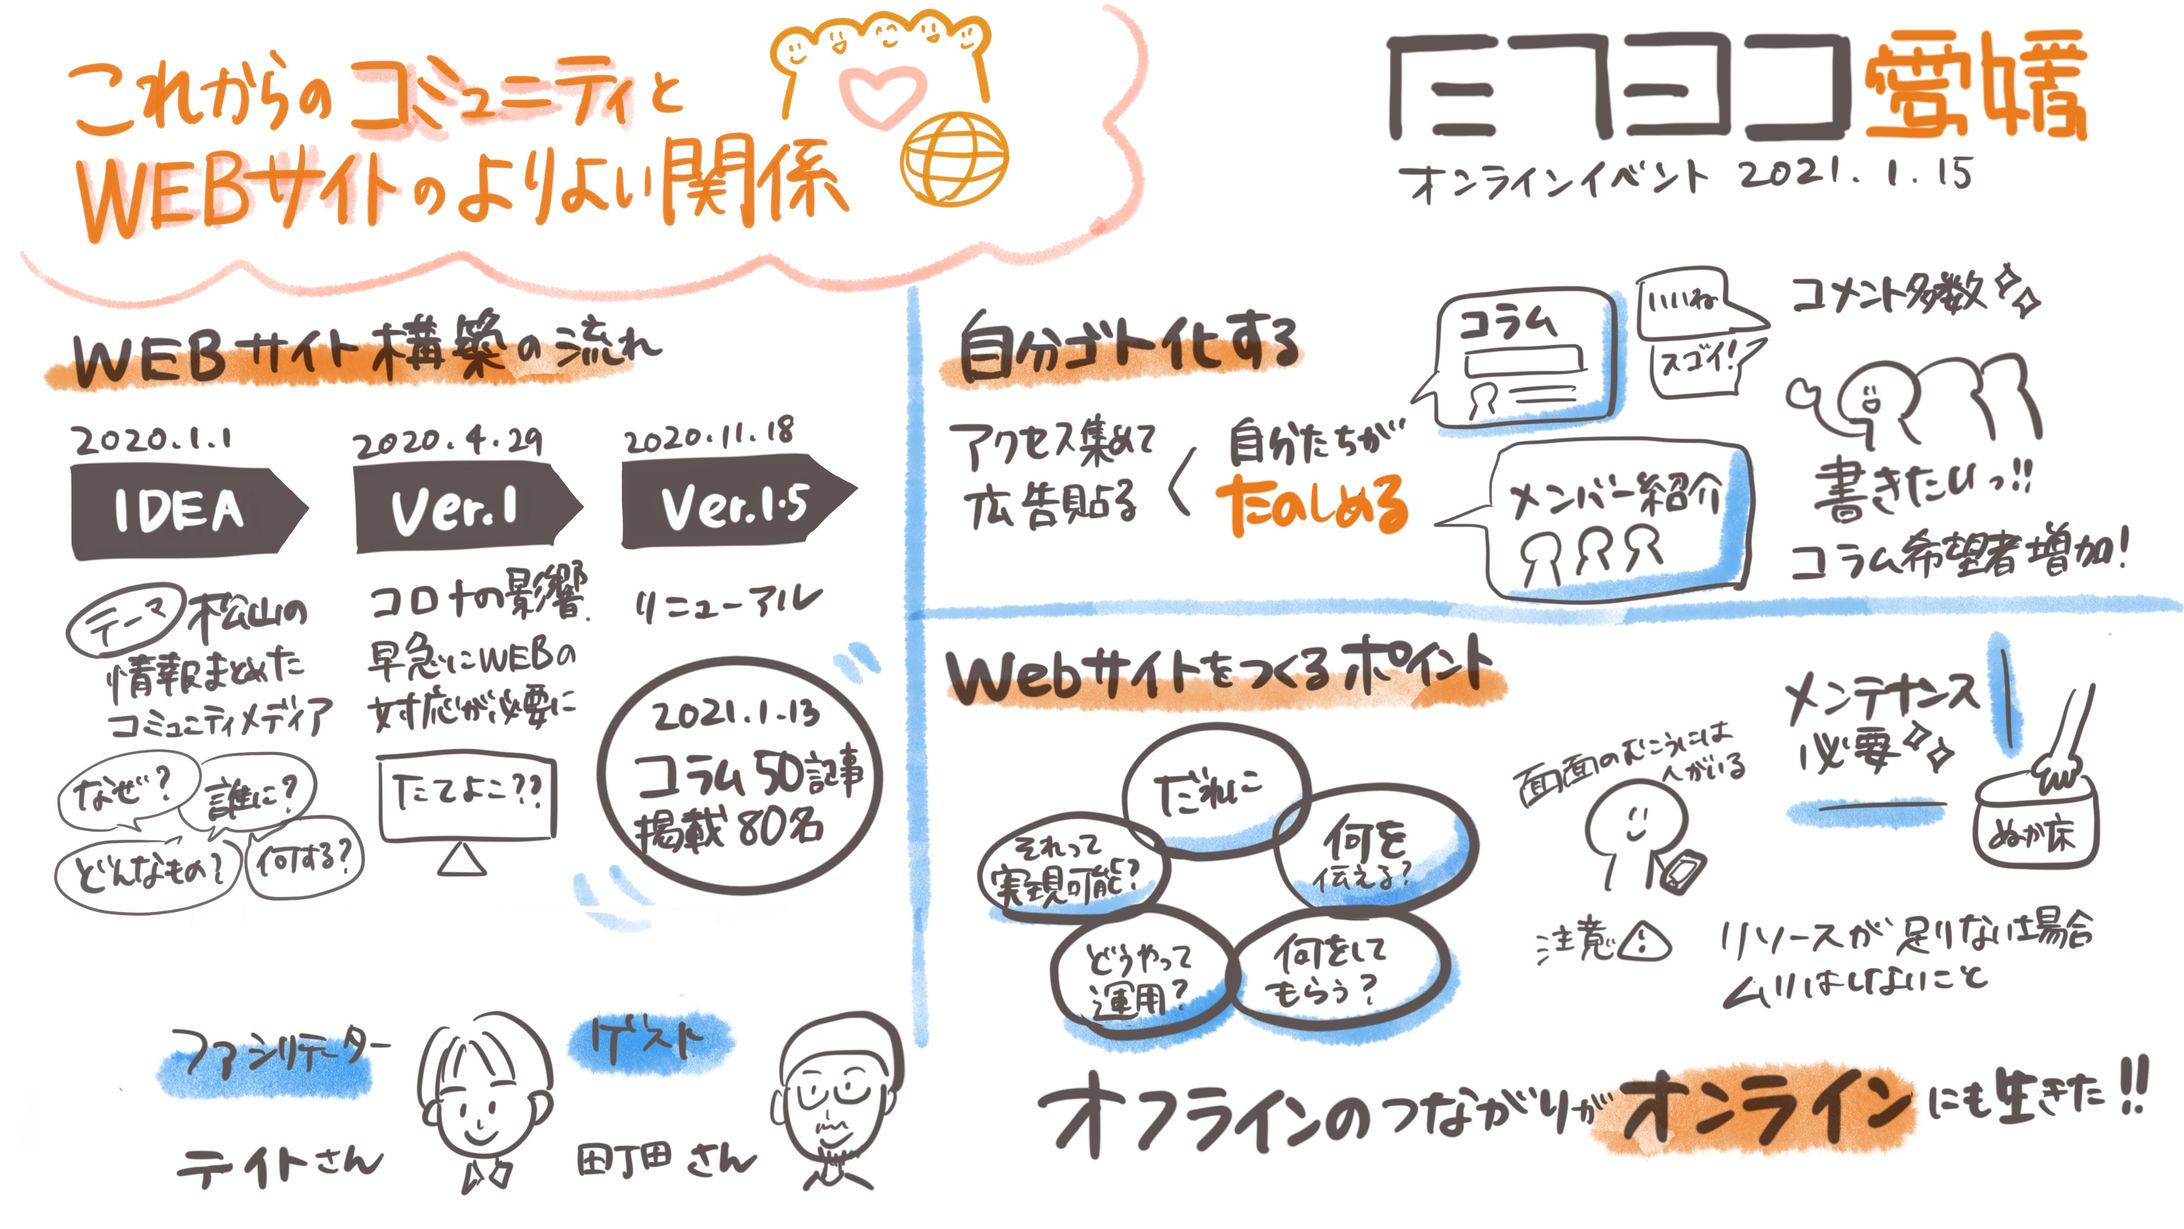 これからのコミュニティと
WEBサイトのよりよい関係
愛媛
オンラインイベント 2021.1.15
WEBサイト構築の流れ
2020.1.1
IDEA
テーマ 松山の
情報まとめた
コミュニティメディア
なぜ?
誰に?
どんなもの?
何する?
2020.4.29
Ver.1
コロナの影響.
早急にWEBの
対応が必要に
たてよこ??
2020.11.18
Ver.1.5
リニューアル
2021.1.13
コラム50記事
掲載80名
ファシリテーター
テイトさん
ゲスト
町田さん
自分ゴト化する
アクセス集めて
広告貼る
<
自分たちが
たのしめる
コラム
いいね
スゴイ!
コメント多数
メンバー紹介
書きたいっ!!
コラム希望者増加!
Webサイトをつくるポイント
だれに
何を
伝える?
何をして
もらう?
どうやって
運用?
それって
実現可能?
画面のむこうには
人がいる
メンテナンス
必要
ぬか床
注意
リソースが足りない場合
ムリはしないこと
オフラインのつながりがオンラインにも生きた!!